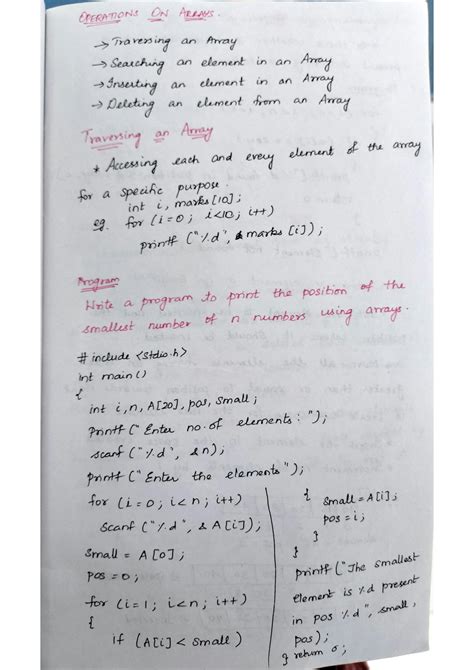 OPERATIONS ON ARRAYS.
→ Traversing an Array
→ Searching an element in an Array
→ Inserting an element in an Array
→ Deleting an element from an Array
Traversing an Array
* Accessing each and every element of the array
for a specific purpose.
int i, marks[10];
eg. for (i=0; i<10; i++)
printf ("%d", marks [i]);
Program
Write a program to print the position of the
smallest number of n numbers using arrays.
# include <stdio.h>
int main ()
{
int i, n, A[20], pos, small;
printf ("Enter no. of elements: ");
scanf ("%d", &n);
printf ("Enter the elements");
for (i=0; i<n; i++)
scanf ("%d", & A[i]);
small = A[0];
pos = 0;
for (i=1; i<n; i++)
{
if (A[i] < small)
{ small = A[i];
pos = i;
}
}
printf ("The smallest
element is %d present
in pos %d", small,
pos);
} return 0;